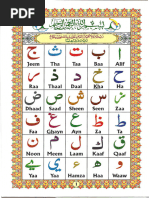 ا ب ت ث ج
Jeem Tha Taa Baa Alif
ح خ د ذ ر
Raa Thaal Daal Kha Haa
ز س ش ص ض
Dhaad Saad Sheen Seen Zaa
ط ظ ع غ ف
Faa Ghayn Ayn Za Taa
ق ك ل م ن
Noon Meem Laam Kaaf Qaaf
و ه ء ي
Yaa Hamza Haa Waaw
1